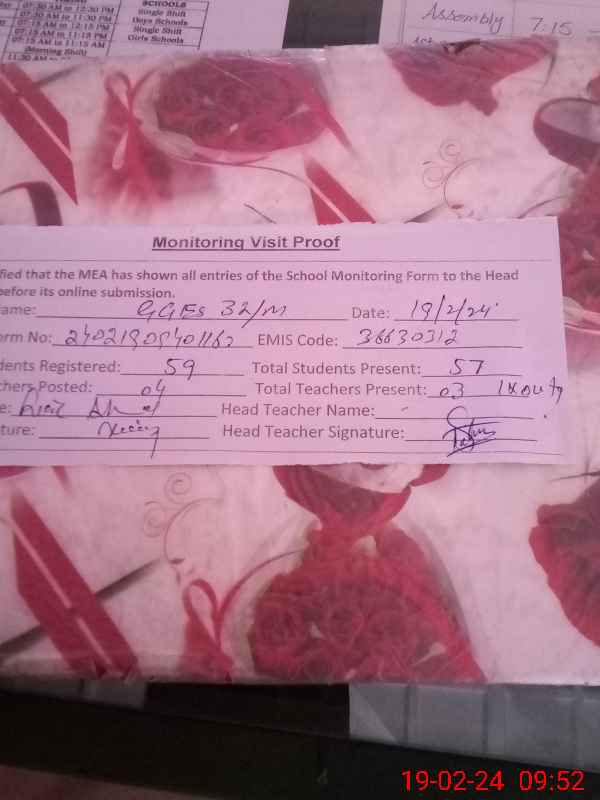 SCHOOLS
07:30 AM to 12:30 PM Single Shift
07:30 AM to 11:30 PM Boys Schools
07:15 AM to 12:15 PM Single Shift
07:15 AM to 11:15 PM Girls Schools
07:15 AM to 11:15 AM
(Morning Shift)
11:30 AM to
Assembly 7:15
Monitoring Visit Proof
fied that the MEA has shown all entries of the School Monitoring Form to the Head
before its online submission.
ame: GGES 32/M Date: 19/2/24
orm No: EMIS Code: 36630312
dents Registered: 59 Total Students Present: 57
chers Posted: 04 Total Teachers Present: 03
e: Head Teacher Name: -
ture: Head Teacher Signature:
19-02-24 09:52